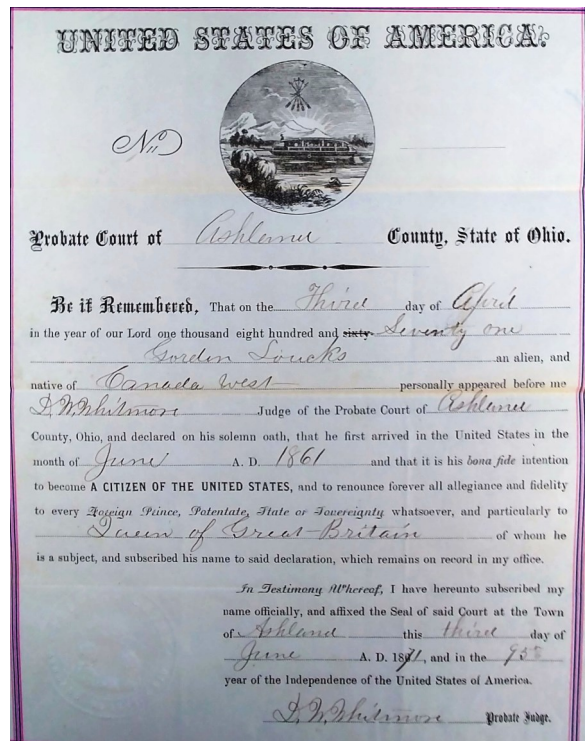 UNITED STATES OF AMERICA.
No
Probate Court of Ashland County, State of Ohio.
Be it Remembered, That on the Third day of April
in the year of our Lord one thousand eight hundred and sixty- Seventy one
Gordin Loucks an alien, and
native of Canada West personally appeared before me
D.W.Whitmore Judge of the Probate Court of Ashland
County, Ohio, and declared on his solemn oath, that he first arrived in the United States in the
month of June A. D. 1861 and that it is his bona fide intention
to become A CITIZEN OF THE UNITED STATES, and to renounce forever all allegiance and fidelity
to every Foreign Prince, Potentate, State or Sovereignty whatsoever, and particularly to
Queen of Great Britain of whom he
is a subject, and subscribed his name to said declaration, which remains on record in my office.
In Testimony Whereof, I have hereunto subscribed my
name officially, and affixed the Seal of said Court at the Town
of Ashland this third day of
June A. D. 1871, and in the
year of the Independence of the United States of America.
D.W.Whitmore Probate Judge.